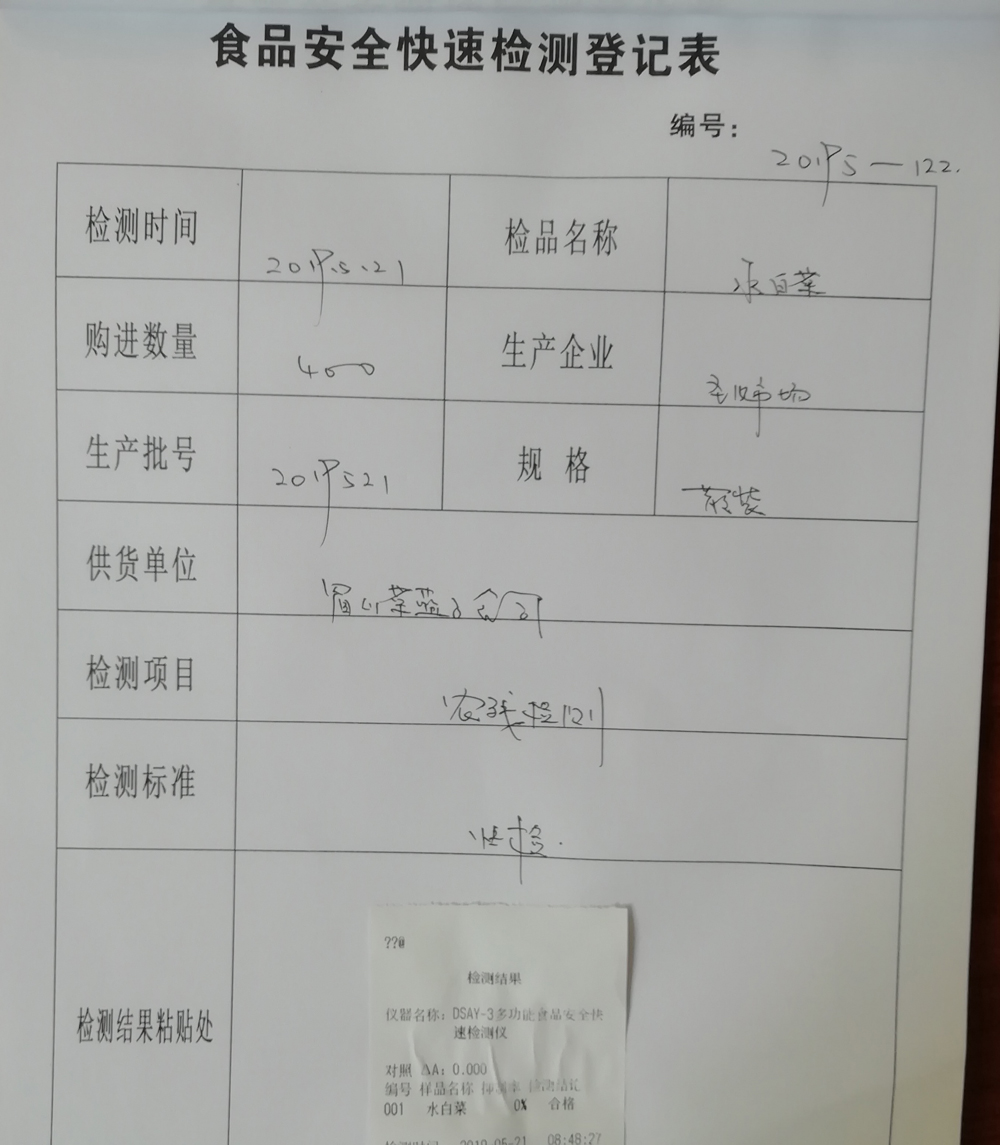 食品安全快速检测登记表
编号:
20195—122.
检测时间 2019.5.21 检品名称 水白菜
购进数量 400 生产企业 市场
生产批号 2019521 规 格 散装
供货单位 眉山菜篮子公司
检测项目 农残检测
检测标准 快检.
检测结果粘贴处
??@
检测结果
仪器名称: DSAY-3多功能食品安全快
速检测仪
对照 △A: 0.000
编号 样品名称 抑制率 检测结论
001 水白菜 0% 合格
检测时间 2019-05-21 08:48:27